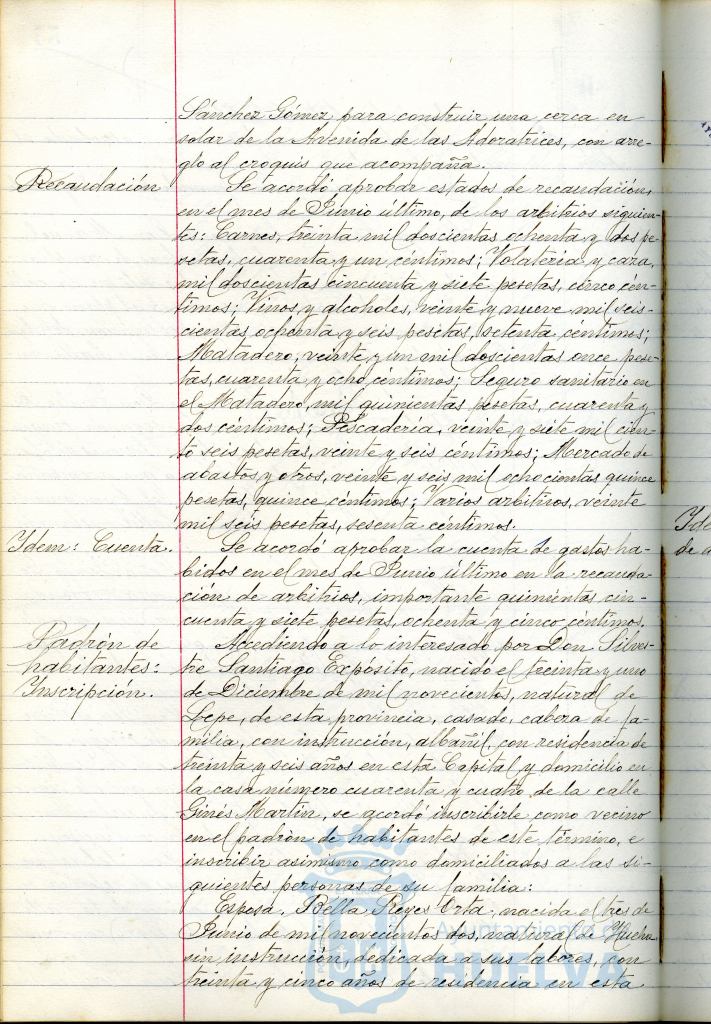 Sánchez Gómez para construir una cerca en
solar de la Avenida de las Adoratrices, con arre-
glo al croquis que acompaña.
Recaudación
Se acordó aprobar estados de recaudación,
en el mes de Junio último, de los arbitrios siguien-
tes: Carnes, treinta mil doscientas ochenta y dos pe-
setas, cuarenta y un céntimos; Volatería y caza,
mil doscientas cincuenta y siete pesetas, cinco cén-
timos; Vinos y alcoholes, veinte y nueve mil seis-
cientas ochenta y seis pesetas, setenta céntimos;
Matadero, veinte y un mil doscientas once pese-
tas, cuarenta y ocho céntimos; Seguro sanitario en
el Matadero, mil quinientas pesetas, cuarenta y
dos céntimos; Pescadería, veinte y siete mil cien-
to seis pesetas, veinte y seis céntimos; Mercado de
abastos y otros, veinte y seis mil ochocientas quince
pesetas, quince céntimos; Varios arbitrios, veinte
mil seis pesetas, sesenta céntimos.
Idem: Cuenta.
Se acordó aprobar la cuenta de gastos ha-
bidos en el mes de Junio último en la recauda-
ción de arbitrios, importante quinientas cin-
cuenta y siete pesetas, ochenta y cinco céntimos.
Padrón de
habitantes:
Inscripción.
Accediendo a lo interesado por Don Silves-
tre Santiago Expósito, nacido el treinta y uno
de Diciembre de mil novecientos, natural de
Lepe, de esta provincia, casado, cabeza de fa-
milia, con instrucción, albañil, con residencia de
treinta y seis años en esta Capital y domicilio en
la casa número cuarenta y cuatro de la calle
Ginés Martín, se acordó inscribirle como vecino
en el padrón de habitantes de este término, e
inscribir asimismo como domiciliados a las si-
guientes personas de su familia:
Esposa, Bella Reyes Orta, nacida el tres de
Junio de mil novecientos dos, natural de Huelva
sin instrucción, dedicada a sus labores, con
treinta y cinco años de residencia en esta
Ayuntamiento de
HUELVA